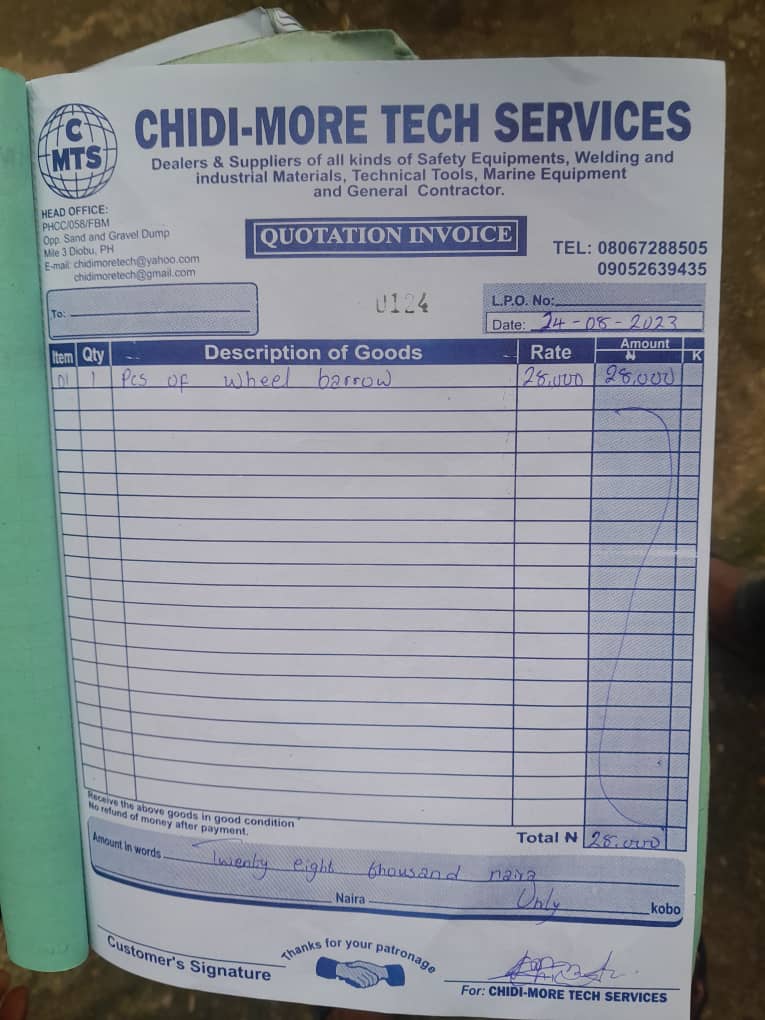 C
MTS
CHIDI-MORE TECH SERVICES
Dealers & Suppliers of all kinds of Safety Equipments, Welding and
industrial Materials, Technical Tools, Marine Equipment
and General Contractor.
HEAD OFFICE:
PHCC/058/FBM
Opp. Sand and Gravel Dump
Mile 3 Diobu, PH
E-mail: chidimoretech@yahoo.com
chidimoretech@gmail.com
QUOTATION INVOICE
TEL: 08067288505
09052639435
To:
0124
L.P.O. No:
Date: 24-08-2023
Item Qty Description of Goods Rate Amount
₦ K
01 1 Pcs of wheel barrow 28,000 28,000
Receive the above goods in good condition
No refund of money after payment.
Total ₦ 28,000
Amount in words Twenty eight thousand naira
Naira Only kobo
Customer's Signature
Thanks for your patronage
For: CHIDI-MORE TECH SERVICES